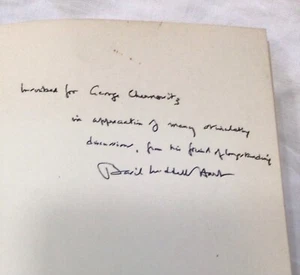 Inscribed for George Chernowitz
in appreciation of many stimulating
discussions, from his friend of longstanding
Basil Liddell Hart